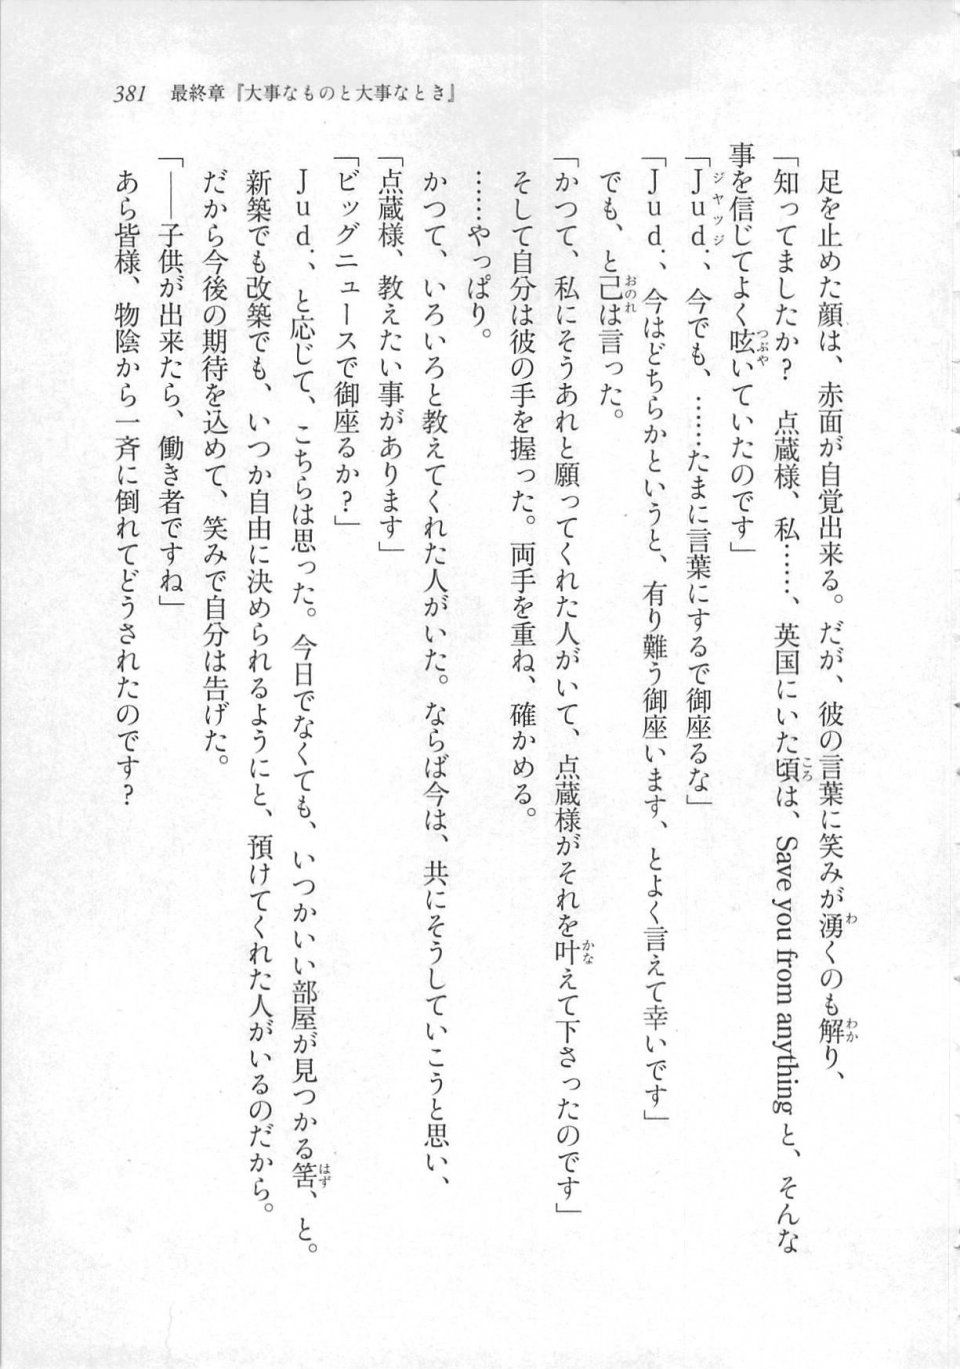 381　最終章『大事なものと大事なとき』
足を止めた顔は、赤面が自覚出来る。だが、彼の言葉に笑みが湧くのも解り、
「知ってましたか？　点蔵様、私……、英国にいた頃は、Save you from anything と、そんな
事を信じてよく呟いていたのです」
「Ｊｕｄ．、今でも、……たまに言葉にするで御座るな」
「Ｊｕｄ．、今はどちらかというと、有り難う御座います、とよく言えて幸いです」
でも、と己は言った。
「かつて、私にそうあれと願ってくれた人がいて、点蔵様がそれを叶えて下さったのです」
そして自分は彼の手を握った。両手を重ね、確かめる。
……やっぱり。
かつて、いろいろと教えてくれた人がいた。ならば今は、共にそうしていこうと思い、
「点蔵様、教えたい事があります」
「ビッグニュースで御座るか？」
Ｊｕｄ．、と応じて、こちらは思った。今日でなくても、いつかいい部屋が見つかる筈、と。
新築でも改築でも、いつか自由に決められるようにと、預けてくれた人がいるのだから。
だから今後の期待を込めて、笑みで自分は告げた。
「――子供が出来たら、働き者ですね」
あら皆様、物陰から一斉に倒れてどうされたのです？